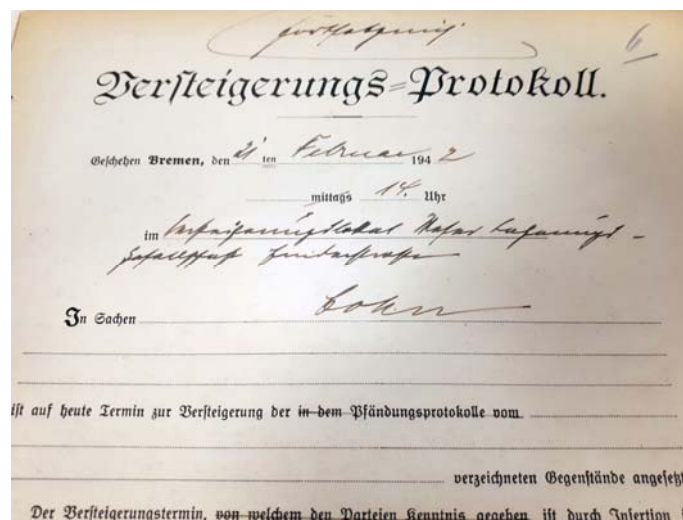 Fortsetzung
6
Versteigerungs-Protokoll.
Geschehen Bremen, den 21 ten Februar 1942
mittags 14. Uhr
im Versteigerungslokal
In Sachen Cohn
ist auf heute Termin zur Versteigerung der in dem Pfändungsprotokolle vom
verzeichneten Gegenstände angesetzt
Der Versteigerungstermin, von welchem den Parteien Kenntnis gegeben, ist durch Insertion